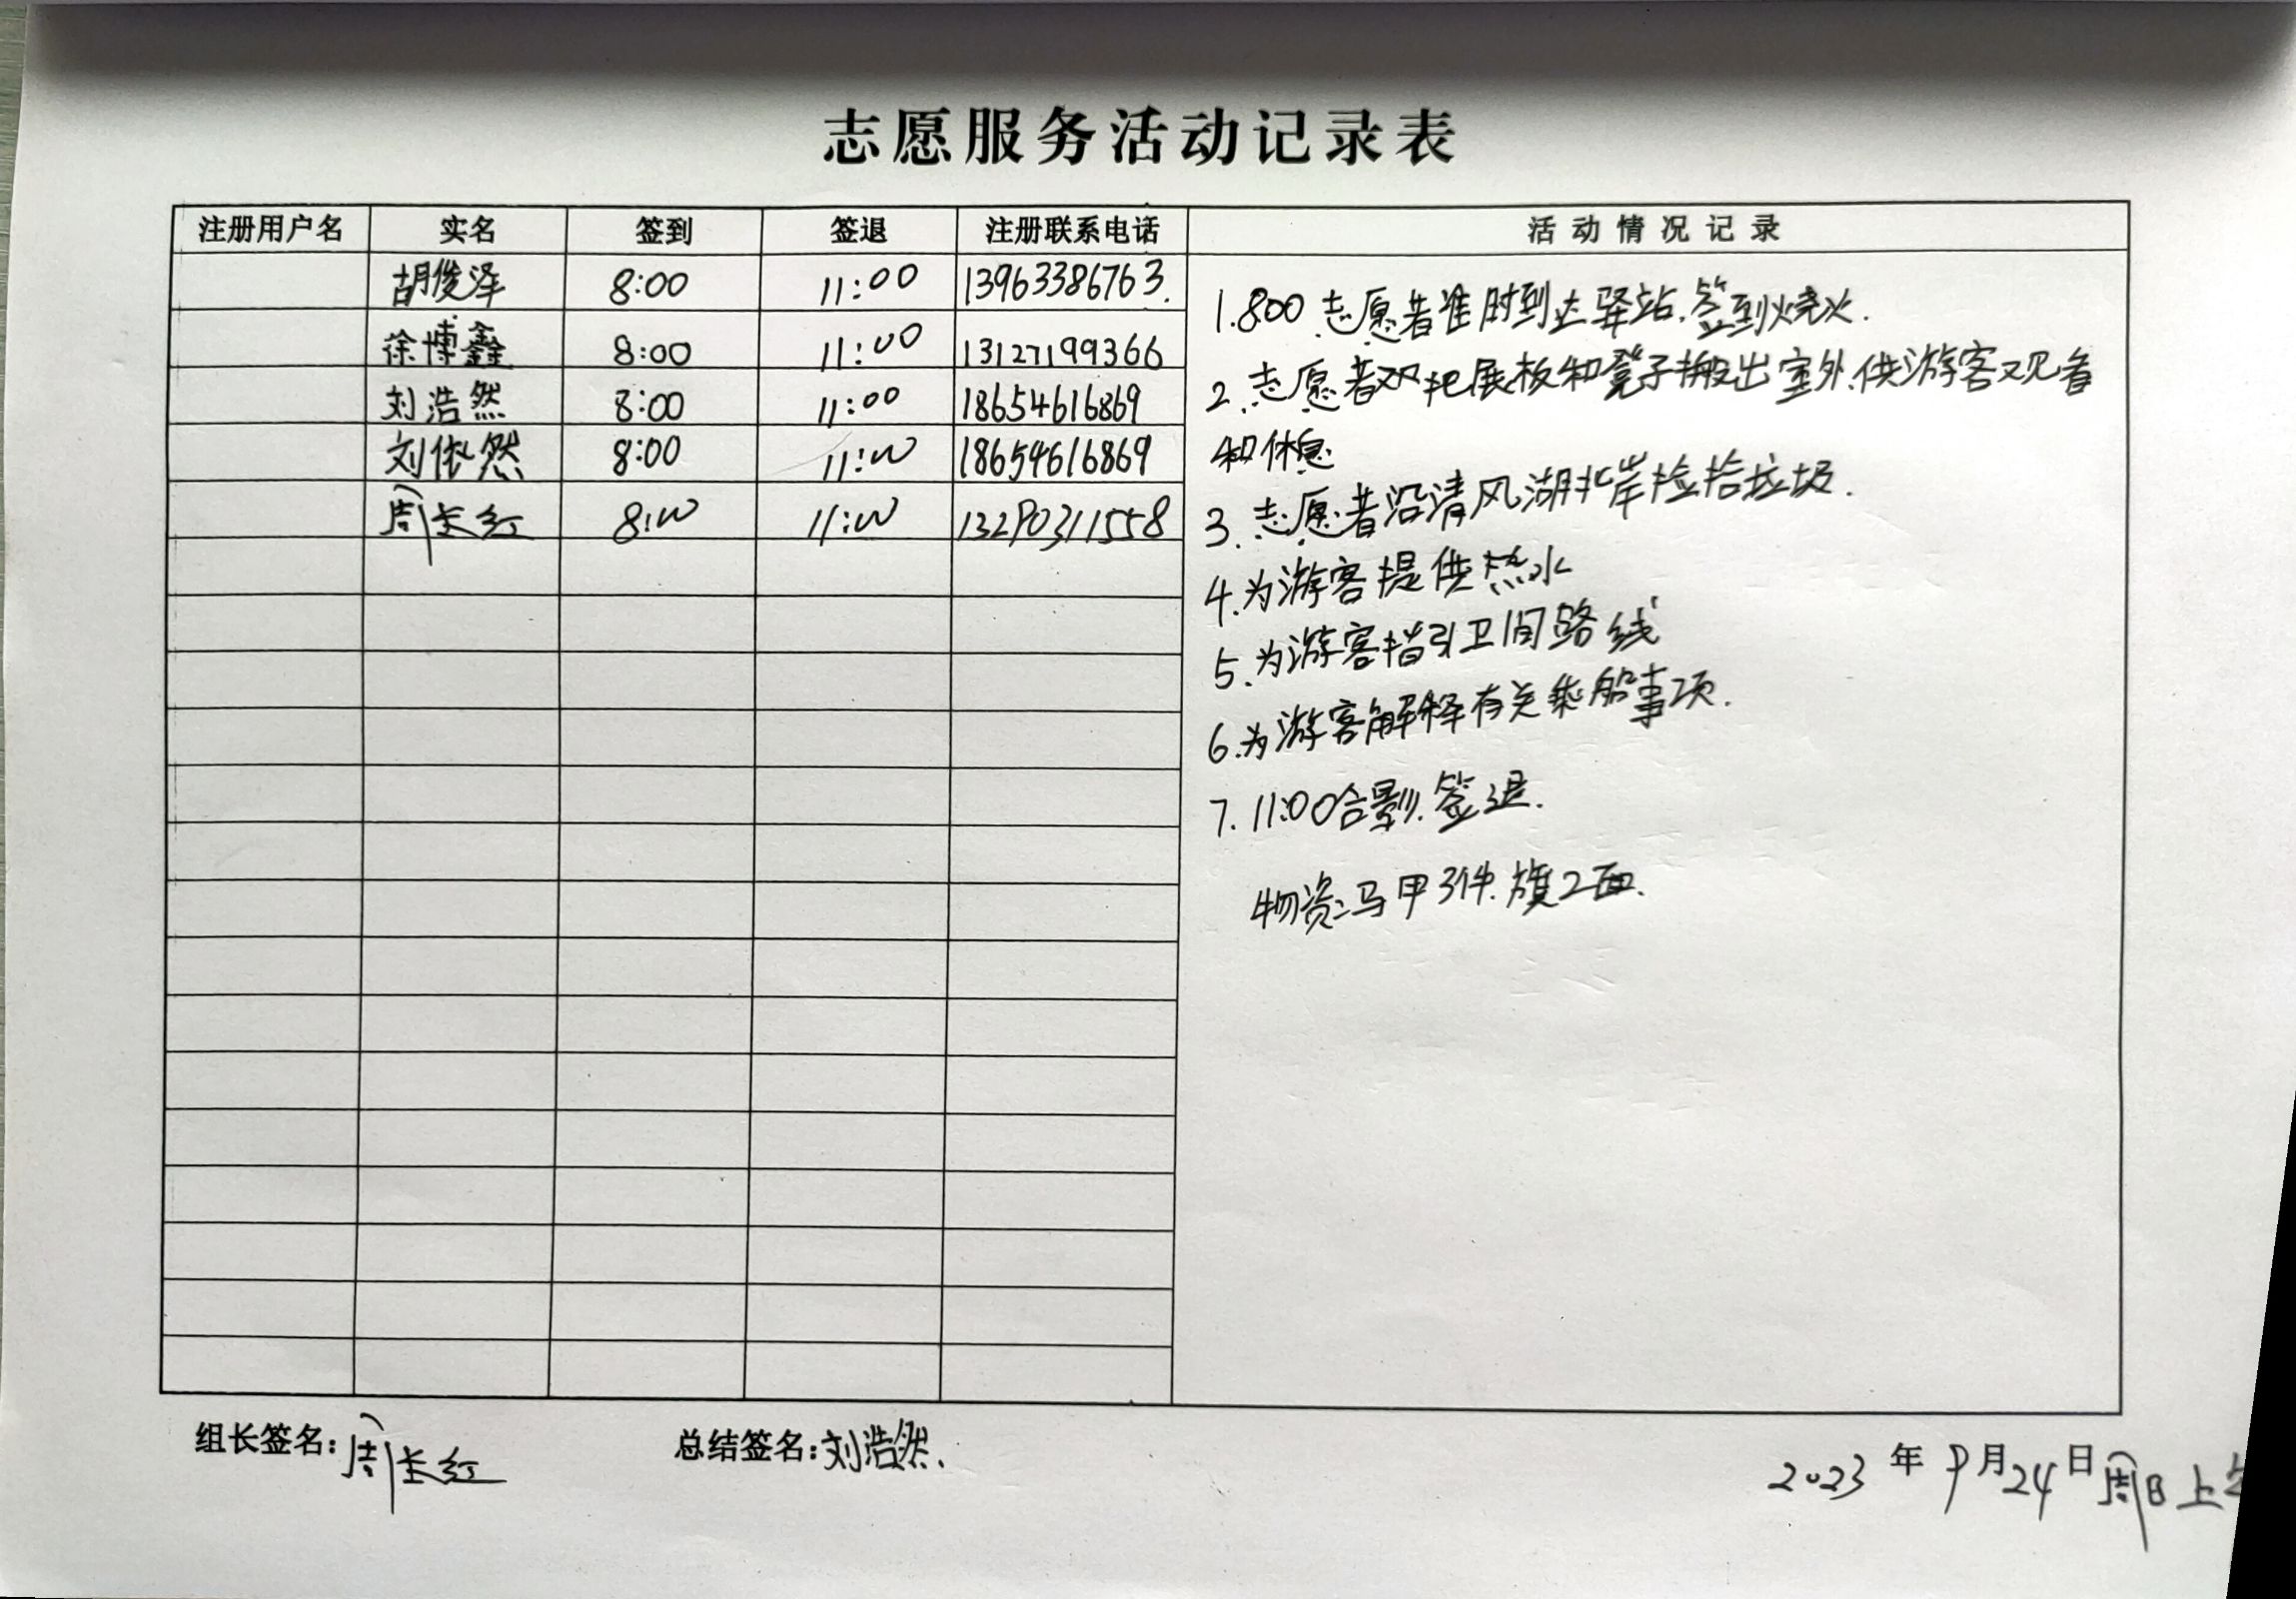 志愿服务活动记录表
注册用户名 实名 签到 签退 注册联系电话 活动情况记录
胡俊泽 8:00 11:00 13963386763.
徐博鑫 8:00 11:00 13127199366
刘浩然 8:00 11:00 18654616869
刘依然 8:00 11:00 18654616869
周长红 8:00 11:00 13290311558
1.800志愿者准时到达驿站.签到烧火.
2.志愿者双把展板和凳子搬出室外.供游客观看
和休息
3.志愿者沿清风湖北岸捡拾垃圾.
4.为游客提供热水
5.为游客指引卫间路线
6.为游客解释有关乘船事项.
7.11:00合影.签退.
物资:马甲3件.旗2面.
组长签名:周长红 总结签名:刘浩然.
2023年9月24日周日上午